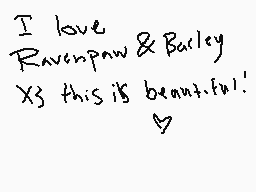 I love
Ravenpaw & Barley
X3 this is beautiful!
♡